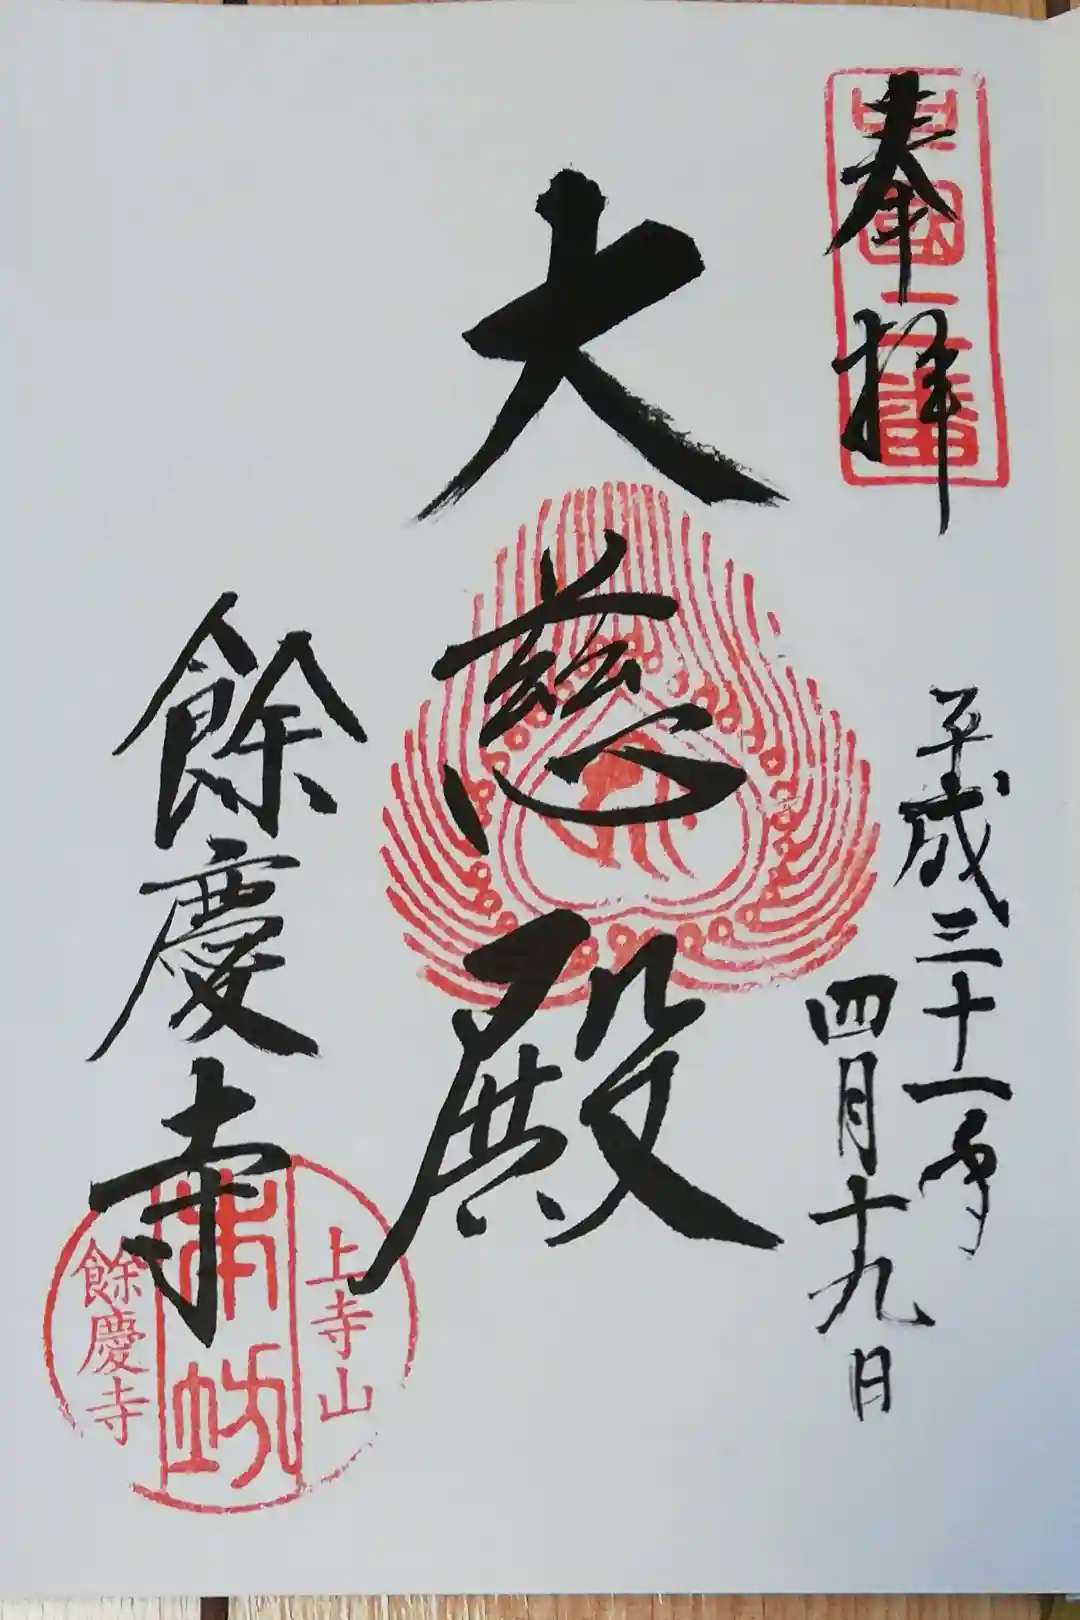 奉拝
中國二番
平成三十一年
四月十九日
大慈殿
餘慶寺
上寺山
本坊
餘慶寺